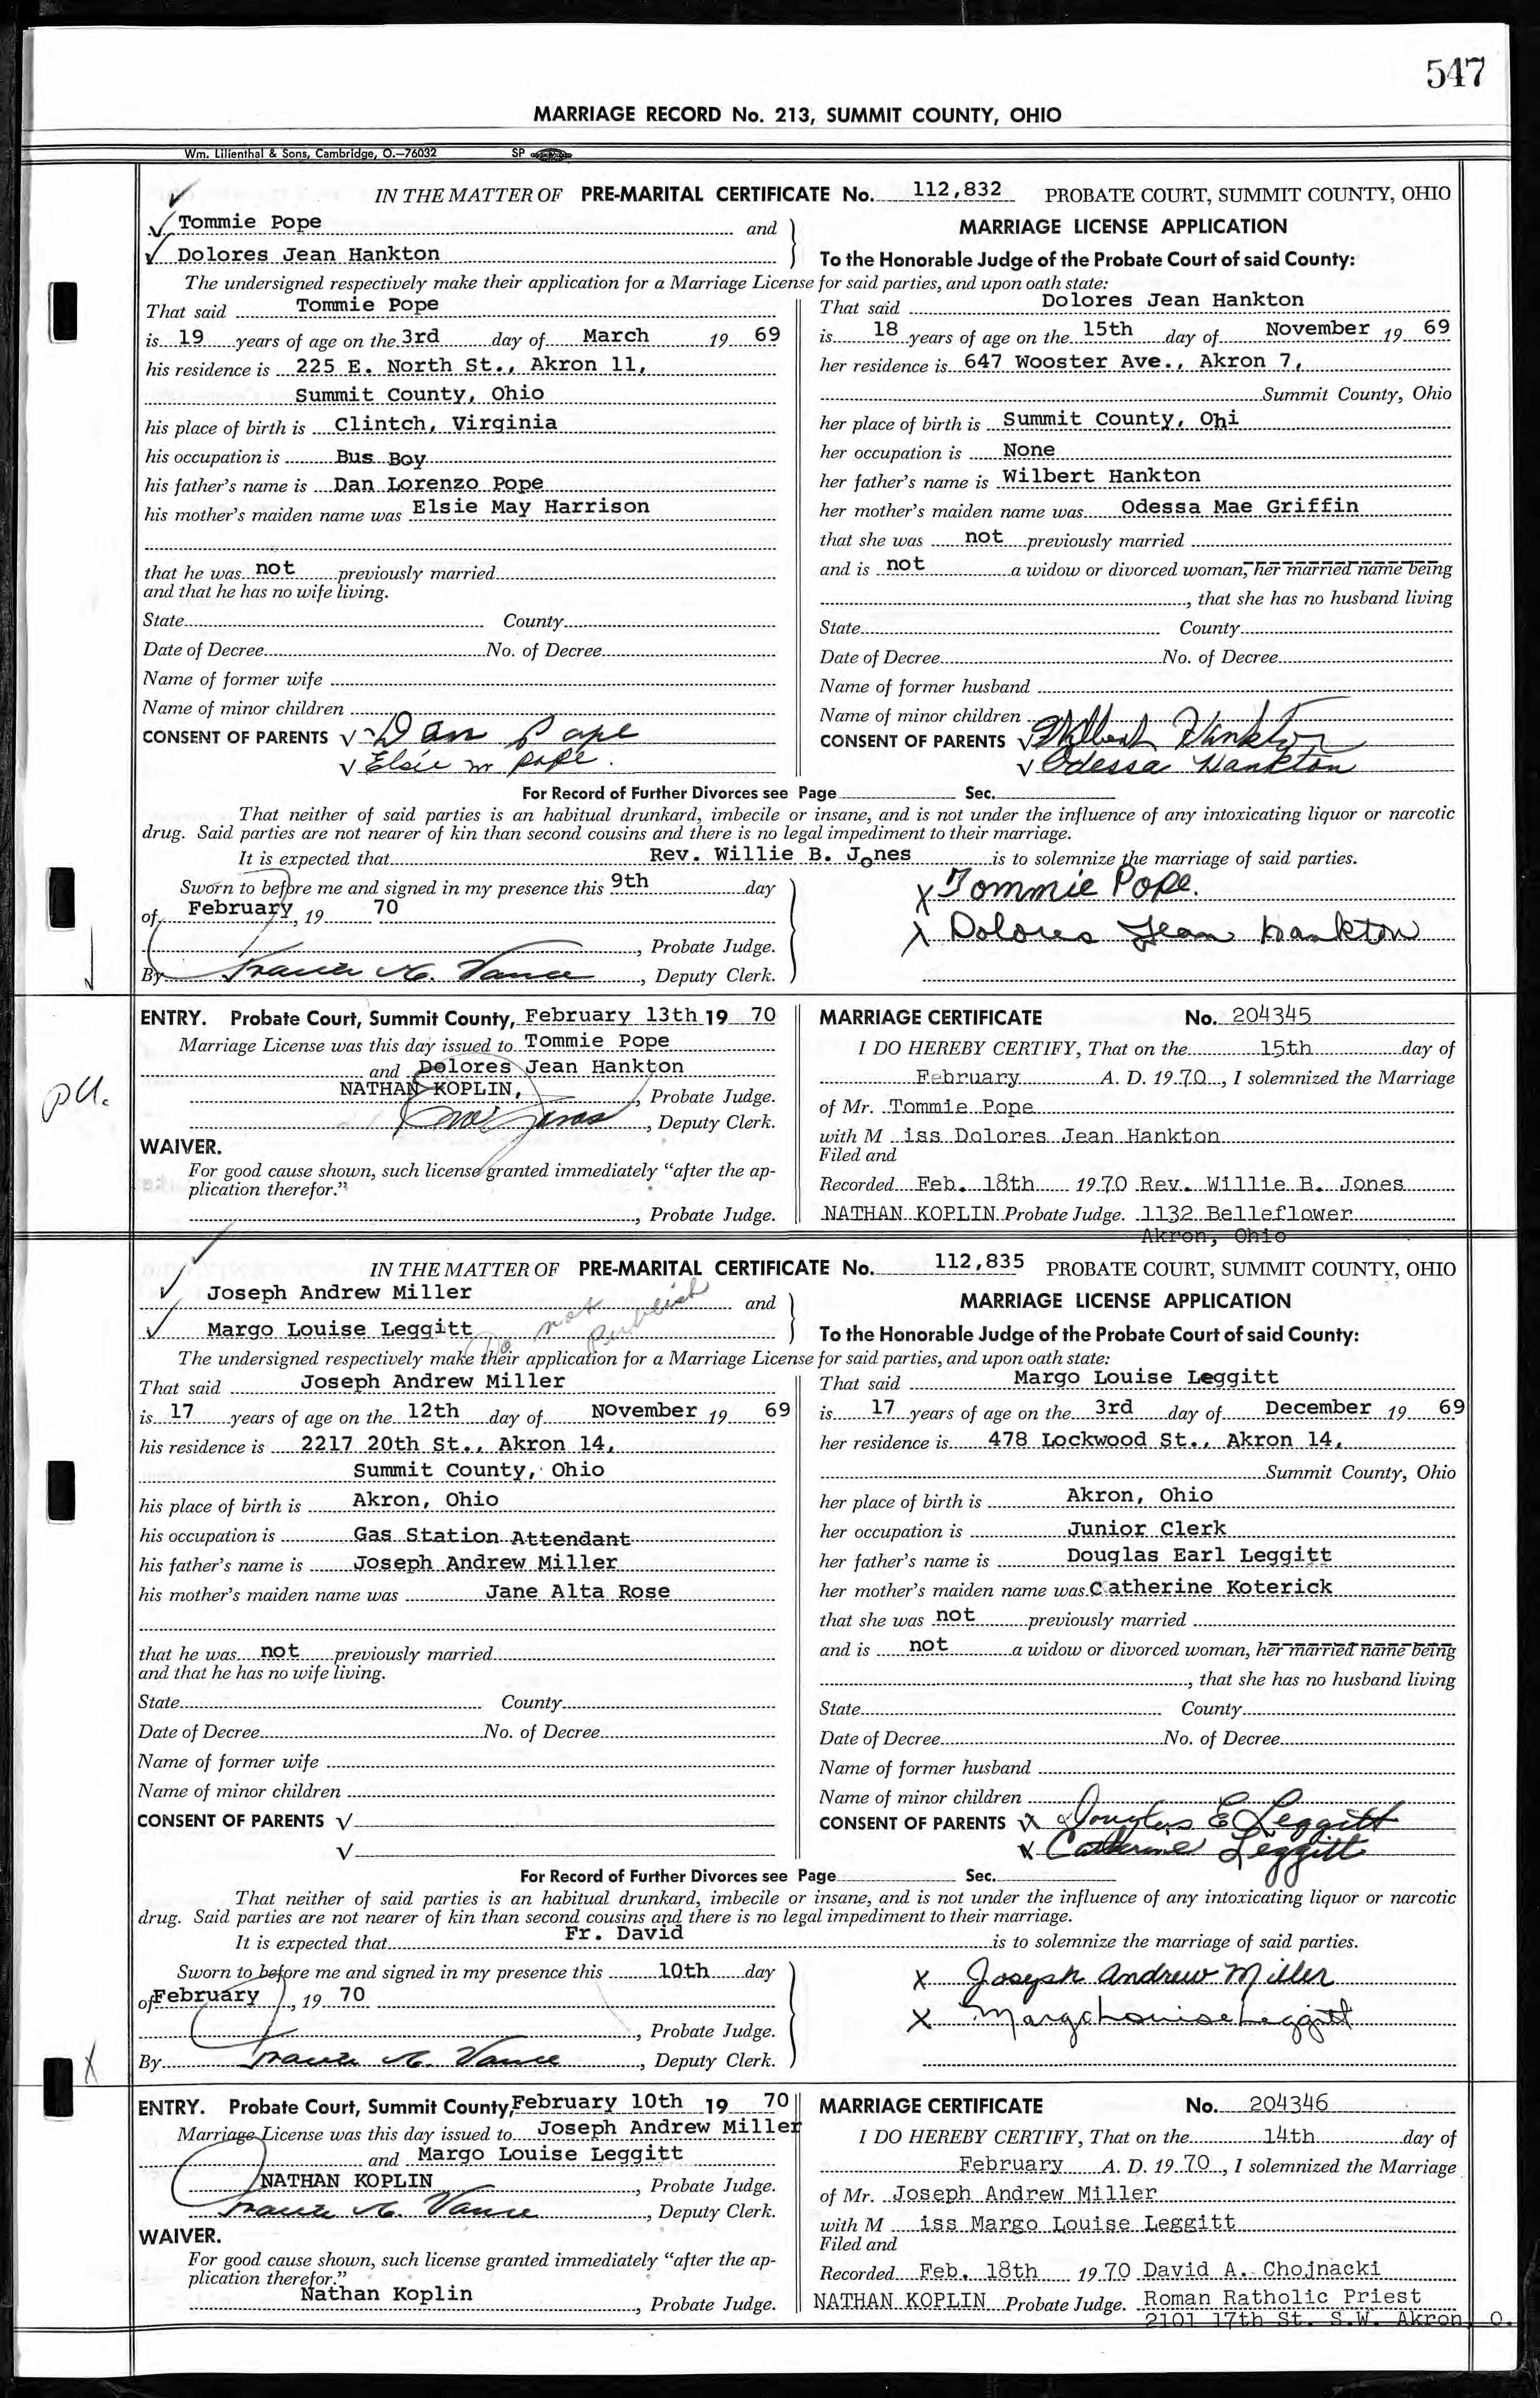 547
MARRIAGE RECORD No. 213, SUMMIT COUNTY, OHIO
Wm. Lilienthal & Sons, Cambridge, O.—76032 SP
IN THE MATTER OF PRE-MARITAL CERTIFICATE No. 112,832 PROBATE COURT, SUMMIT COUNTY, OHIO
Tommie Pope and
Dolores Jean Hankton
MARRIAGE LICENSE APPLICATION
To the Honorable Judge of the Probate Court of said County:
The undersigned respectively make their application for a Marriage License for said parties, and upon oath state:
That said Tommie Pope
is 19 years of age on the 3rd day of March 19 69
his residence is 225 E. North St., Akron 11,
Summit County, Ohio
his place of birth is Clintch, Virginia
his occupation is Bus Boy
his father's name is Dan Lorenzo Pope
his mother's maiden name was Elsie May Harrison
that he was not previously married
and that he has no wife living.
State County
Date of Decree No. of Decree
Name of former wife
Name of minor children
CONSENT OF PARENTS √ Dan Pope
√ Elsie m Pope.
That said Dolores Jean Hankton
is 18 years of age on the 15th day of November 19 69
her residence is 647 Wooster Ave., Akron 7,
Summit County, Ohio
her place of birth is Summit County, Ohi
her occupation is None
her father's name is Wilbert Hankton
her mother's maiden name was Odessa Mae Griffin
that she was not previously married
and is not a widow or divorced woman, her married name being
, that she has no husband living
State County
Date of Decree No. of Decree
Name of former husband
Name of minor children
CONSENT OF PARENTS √ Wilbert Hankton
√ Odessa Hankton
For Record of Further Divorces see Page Sec.
That neither of said parties is an habitual drunkard, imbecile or insane, and is not under the influence of any intoxicating liquor or narcotic
drug. Said parties are not nearer of kin than second cousins and there is no legal impediment to their marriage.
It is expected that Rev. Willie B. Jones is to solemnize the marriage of said parties.
Sworn to before me and signed in my presence this 9th day
of February, 19 70
, Probate Judge.
By Vance, Deputy Clerk.
X Tommie Pope.
X Dolores Jean Hankton
ENTRY. Probate Court, Summit County, February 13th 19 70
Marriage License was this day issued to Tommie Pope
and Dolores Jean Hankton
NATHAN KOPLIN, , Probate Judge.
, Deputy Clerk.
WAIVER.
For good cause shown, such license granted immediately "after the ap-
plication therefor."
, Probate Judge.
MARRIAGE CERTIFICATE No. 204345
I DO HEREBY CERTIFY, That on the 15th day of
February A. D. 19 70, I solemnized the Marriage
of Mr. Tommie Pope
with M iss Dolores Jean Hankton
Filed and
Recorded Feb. 18th 19 70 Rev. Willie B. Jones
NATHAN KOPLIN Probate Judge. 1132 Belleflower
Akron, Ohio
IN THE MATTER OF PRE-MARITAL CERTIFICATE No. 112,835 PROBATE COURT, SUMMIT COUNTY, OHIO
Joseph Andrew Miller and
Margo Louise Leggitt
Do not Publish
MARRIAGE LICENSE APPLICATION
To the Honorable Judge of the Probate Court of said County:
The undersigned respectively make their application for a Marriage License for said parties, and upon oath state:
That said Joseph Andrew Miller
is 17 years of age on the 12th day of November 19 69
his residence is 2217 20th St., Akron 14,
Summit County, Ohio
his place of birth is Akron, Ohio
his occupation is Gas Station Attendant
his father's name is Joseph Andrew Miller
his mother's maiden name was Jane Alta Rose
that he was not previously married
and that he has no wife living.
State County
Date of Decree No. of Decree
Name of former wife
Name of minor children
CONSENT OF PARENTS √
√
That said Margo Louise Leggitt
is 17 years of age on the 3rd day of December 19 69
her residence is 478 Lockwood St., Akron 14,
Summit County, Ohio
her place of birth is Akron, Ohio
her occupation is Junior Clerk
her father's name is Douglas Earl Leggitt
her mother's maiden name was Catherine Koterick
that she was not previously married
and is not a widow or divorced woman, her married name being
, that she has no husband living
State County
Date of Decree No. of Decree
Name of former husband
Name of minor children
CONSENT OF PARENTS √ X Douglas E Leggitt
X Catherine Leggitt
For Record of Further Divorces see Page Sec.
That neither of said parties is an habitual drunkard, imbecile or insane, and is not under the influence of any intoxicating liquor or narcotic
drug. Said parties are not nearer of kin than second cousins and there is no legal impediment to their marriage.
It is expected that Fr. David is to solemnize the marriage of said parties.
Sworn to before me and signed in my presence this 10th day
of February, 19 70
, Probate Judge.
By Vance, Deputy Clerk.
X Joseph Andrew Miller
X Margo Louise Leggitt
ENTRY. Probate Court, Summit County, February 10th 19 70
Marriage License was this day issued to Joseph Andrew Miller
and Margo Louise Leggitt
NATHAN KOPLIN , Probate Judge.
Vance, Deputy Clerk.
WAIVER.
For good cause shown, such license granted immediately "after the ap-
plication therefor."
Nathan Koplin , Probate Judge.
MARRIAGE CERTIFICATE No. 204346
I DO HEREBY CERTIFY, That on the 14th day of
February A. D. 19 70, I solemnized the Marriage
of Mr. Joseph Andrew Miller
with M iss Margo Louise Leggitt
Filed and
Recorded Feb. 18th 19 70 David A. Chojnacki
NATHAN KOPLIN Probate Judge. Roman Ratholic Priest
2101 17th St. S.W. Akron, O.